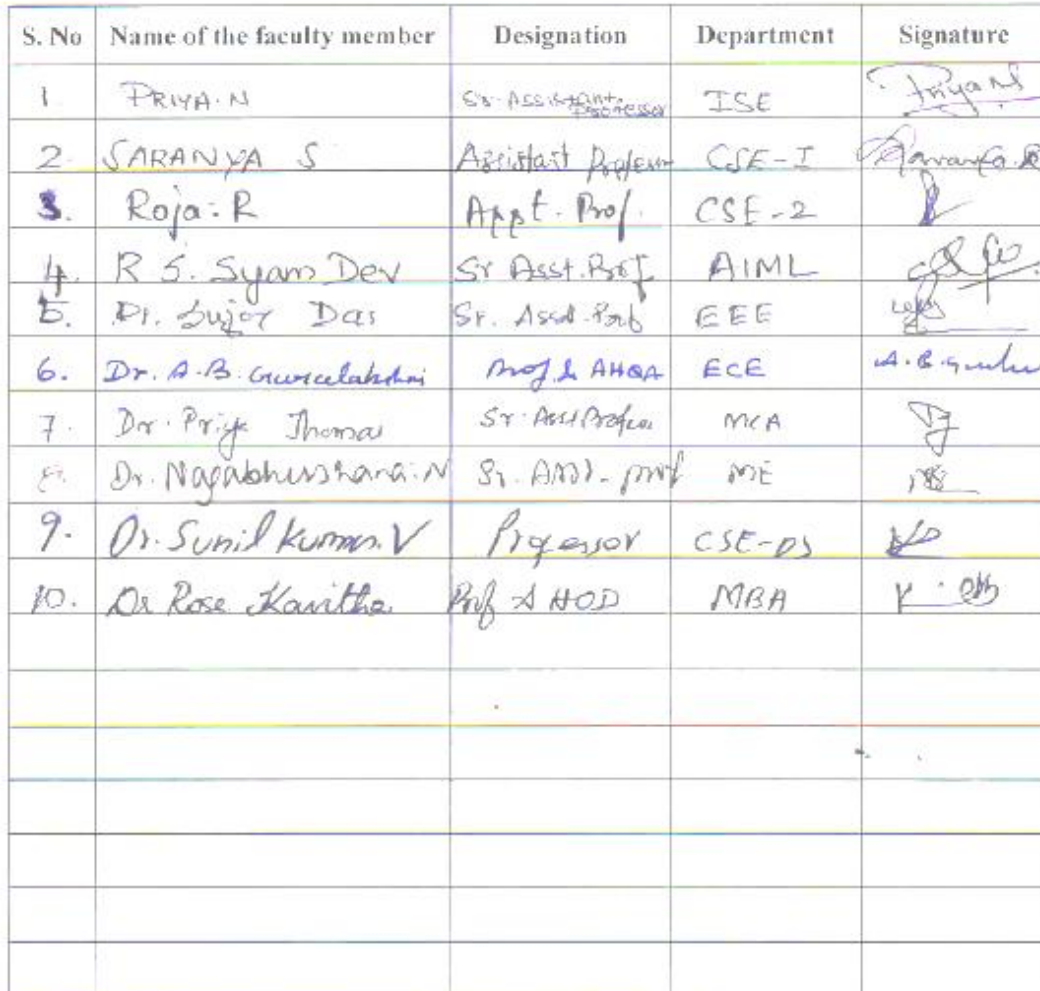 S. No Name of the faculty member Designation Department Signature
1. PRIYA. N Sr. Assistant Professor ISE Priya N
2. SARANYA S Assistant Professor CSE-I Saranya. S
3. Roja. R Asst. Prof. CSE-2
4. R S. Syam Dev Sr Asst. Prof AIML
5. Dr. Sujoy Das Sr. Asst. Prof EEE
6. Dr. A. B. Gurulakshmi Prof & ECE A. B. Guru
7. Dr. Priya Thomas Sr. Asst Professor MCA
8. Dr. Nagabhushana. N Sr. Asst. prof ME
9. Dr. Sunil Kumar. V Professor CSE-DS
10. Dr Rose Kavitha Prof & HOD MBA